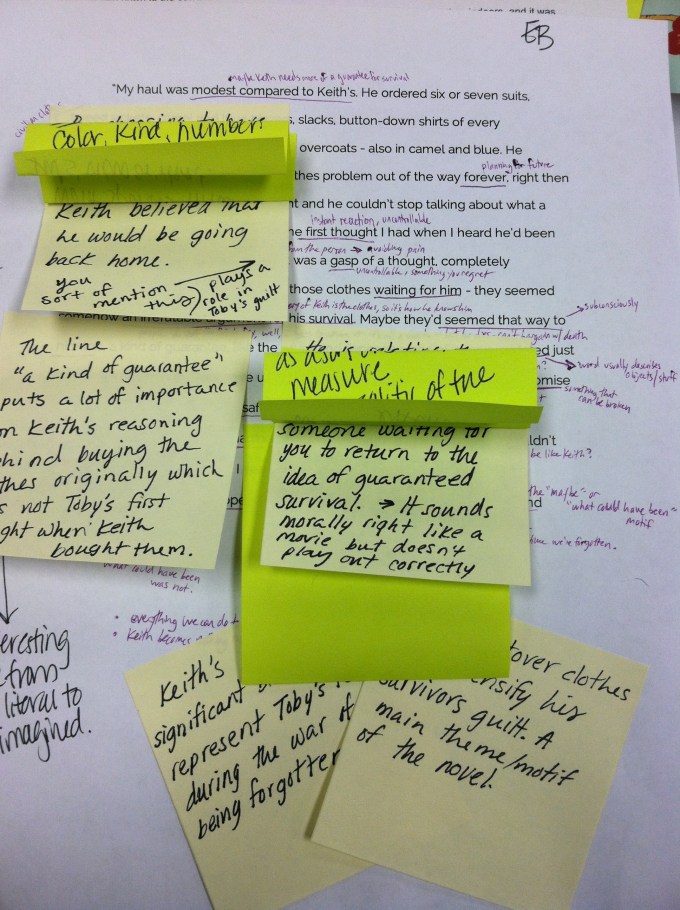 EB
maybe Keith needs more of a guarantee for survival
"My haul was modest compared to Keith's. He ordered six or seven suits,
s, slacks, button-down shirts of every
overcoats - also in camel and blue. He
planning for future
thes problem out of the way forever, right then
nt and he couldn't stop talking about what a
instant reaction, uncontrollable
he first thought I had when I heard he'd been
the person → avoiding pain
was a gasp of a thought, completely
uncontrollable, something you regret
those clothes waiting for him - they seemed
of Keith is the clothes, so it's how he knows him
→ subconsciously
his survival. Maybe they'd seemed that way to
w/ death
the
ed just
→ word usually describes
objects/stuff
omise
something that
can be broken
ldn't
be like Keith?
nd
the "maybe" or
"what could have been"
motif
time we're forgotten.
what could have been
was not.
• everything we can do
• Keith becomes
color, kind, numbers
Keith believed that
he would be going
back home.
you
sort of
mention
this) plays a
role in
Toby's guilt
The line
"a kind of guarantee"
puts a lot of importance
on Keith's reasoning
hind buying the
thes originally which
s not Toby's first
ght when Keith
bought them.
measure
of the
someone waiting for
you to return to the
idea of guaranteed
survival. → It sounds
morally right like a
movie but doesn't
play out correctly
eresting
from
literal to
imagined.
Keith's
significant
represent Toby's
during the war of
being forgotten
over clothes
nsify his
survivors guilt. A
main theme/motif
of the novel.